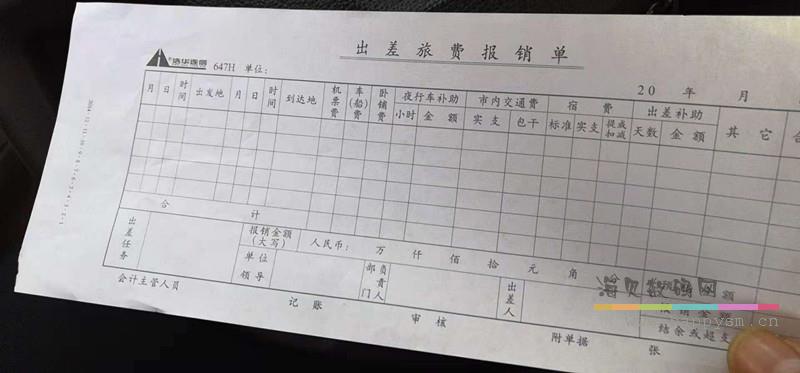 出差旅费报销单
浩华连册 647H 单位： 20 年 月
月 日 时间 出发地 月 日 时间 到达地 机票费 车(船)费 卧铺费 夜行车补助 市内交通费 宿费 出差补助 其它
小时 金额 实支 包干 标准 实支 提成扣减 天数 金额
合计
出差任务 报销金额(大写) 人民币： 万 仟 佰 拾 元 角
单位领导 部门负责人 出差人
报销金额
结余或超支
会计主管人员 记账 审核 附单据 张